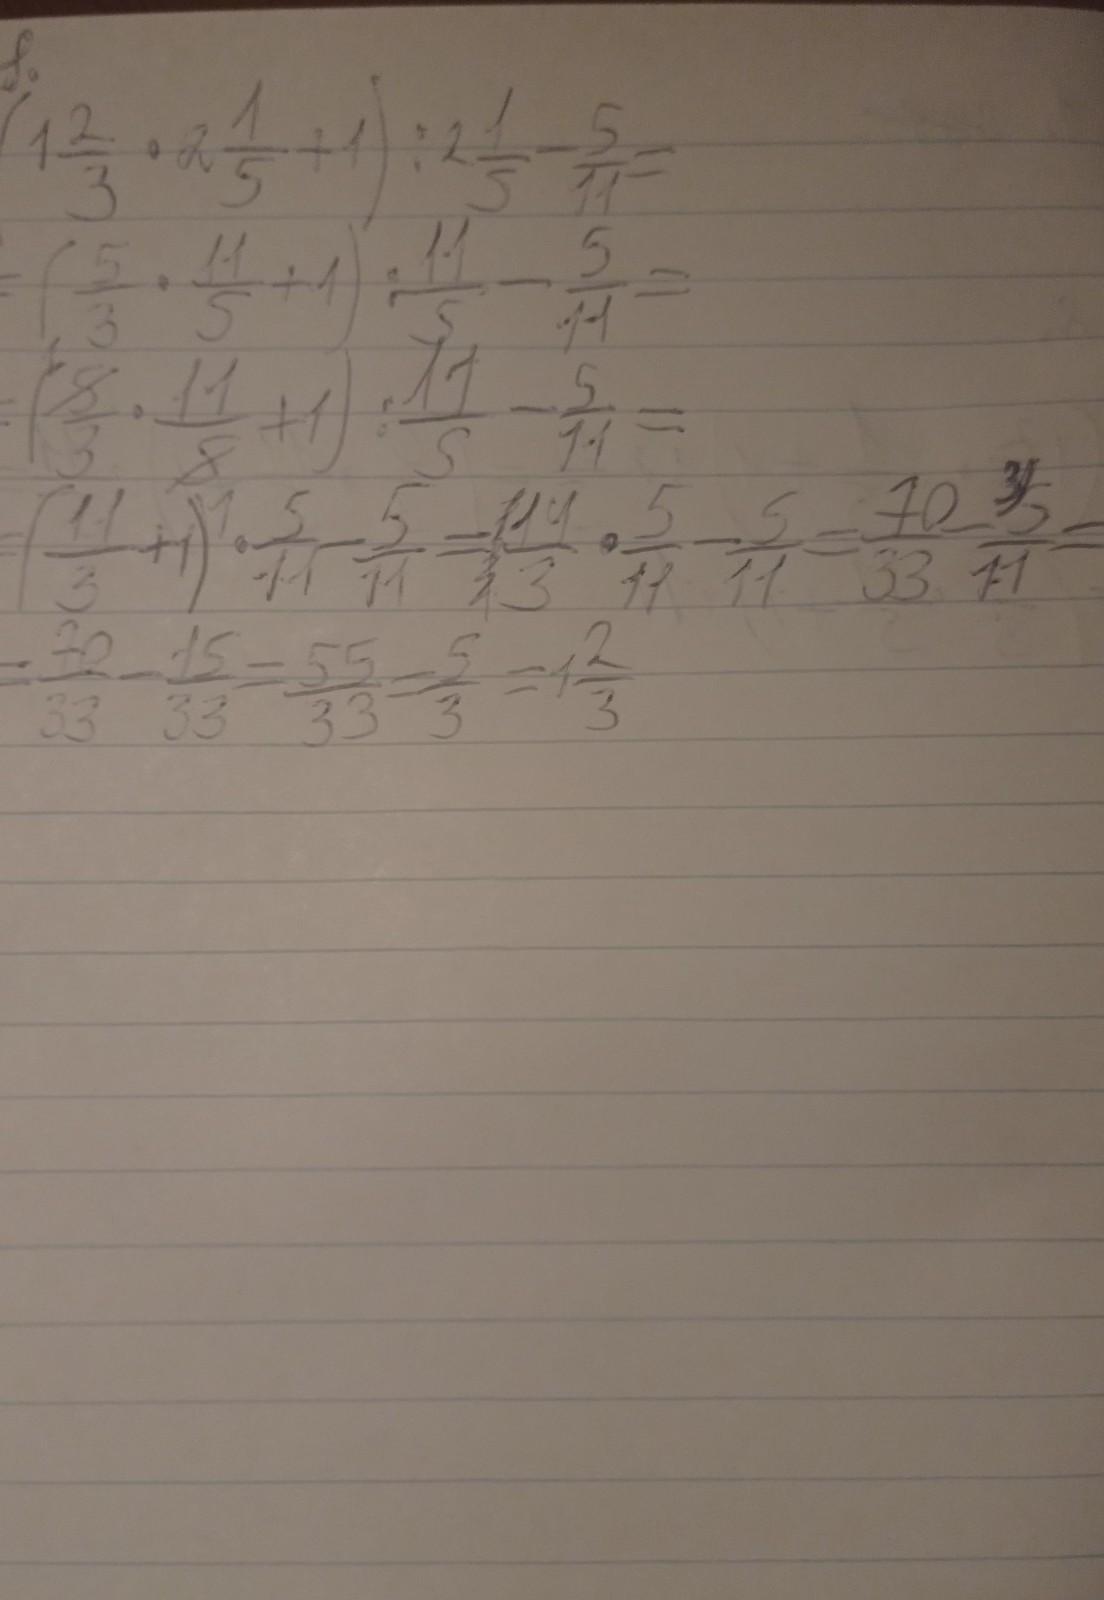 8.
(1 2/3 · 2 1/5 + 1) : 2 1/5 - 5/11 =
= (5/3 · 11/5 + 1) : 11/5 - 5/11 =
= (5/3 · 11/5 + 1) : 11/5 - 5/11 =
= (11/3 + 1) · 5/11 - 5/11 = 14/3 · 5/11 - 5/11 = 70/33 - 5/11 =
= 70/33 - 15/33 = 55/33 = 5/3 = 1 2/3